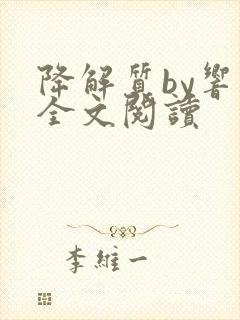 降解質by響
全文閱讀
李維一